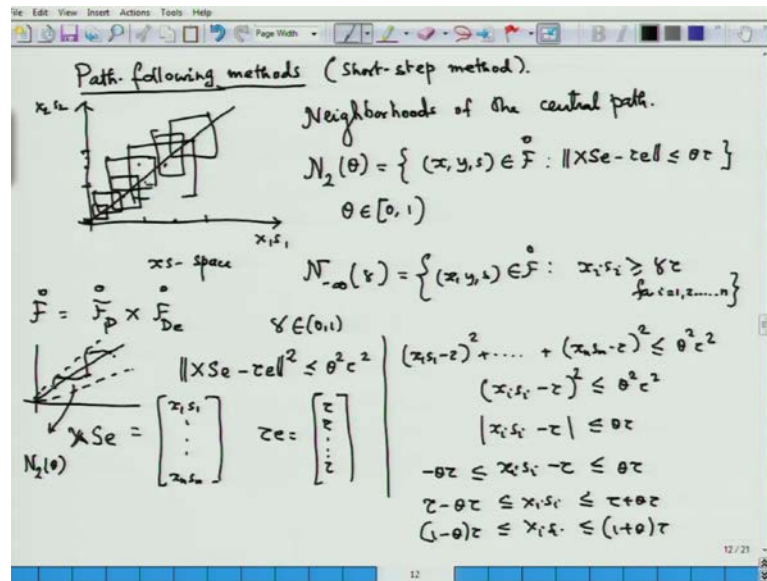 File Edit View Insert Actions Tools Help
Page Width
Path-following methods (Short-step method).
x₂s₂
x₁s₁
xs-space
Neighborhoods of the central path.
N₂(θ) = { (x, y, s) ∈ F° : ||XSe - τe|| ≤ θτ }
θ ∈ [0, 1)
N₋∞(γ) = { (x, y, s) ∈ F° : xᵢsᵢ ≥ γτ
for i=1,2.....n }
F° = F°p × F°De
γ ∈ (0,1)
N₂(θ)
||XSe - τe||² ≤ θ²τ²
XSe = [ x₁s₁ . . . xₙsₙ ] τe = [ τ τ : τ ]
(x₁s₁-τ)² + .... + (xₙsₙ-τ)² ≤ θ²τ²
(xᵢsᵢ - τ)² ≤ θ²τ²
|xᵢsᵢ - τ| ≤ θτ
-θτ ≤ xᵢsᵢ - τ ≤ θτ
τ-θτ ≤ xᵢsᵢ ≤ τ+θτ
(1-θ)τ ≤ xᵢsᵢ ≤ (1+θ)τ
12/21
12